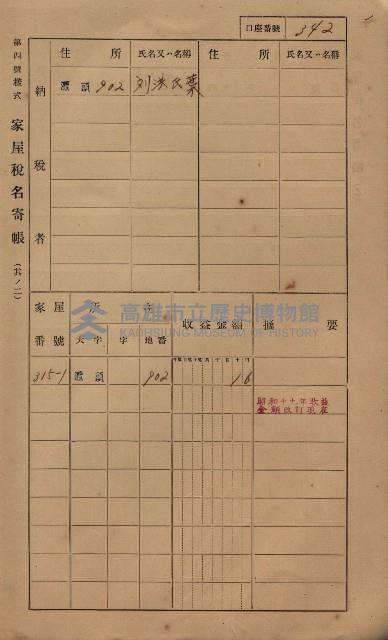 口座番號 342
第四號樣式 家屋稅名寄帳 (其ノ二)
納稅者
住所 氏名又ハ名稱 住所 氏名又ハ名稱
覆頭 902 刘洪氏葉
家屋番號 所在 收益金額 摘要
大字 字 地番
315-1 覆頭 902 16
昭和十十年收益
金額改訂現在
高雄市立歷史博物館
KAOHSIUNG MUSEUM OF HISTORY